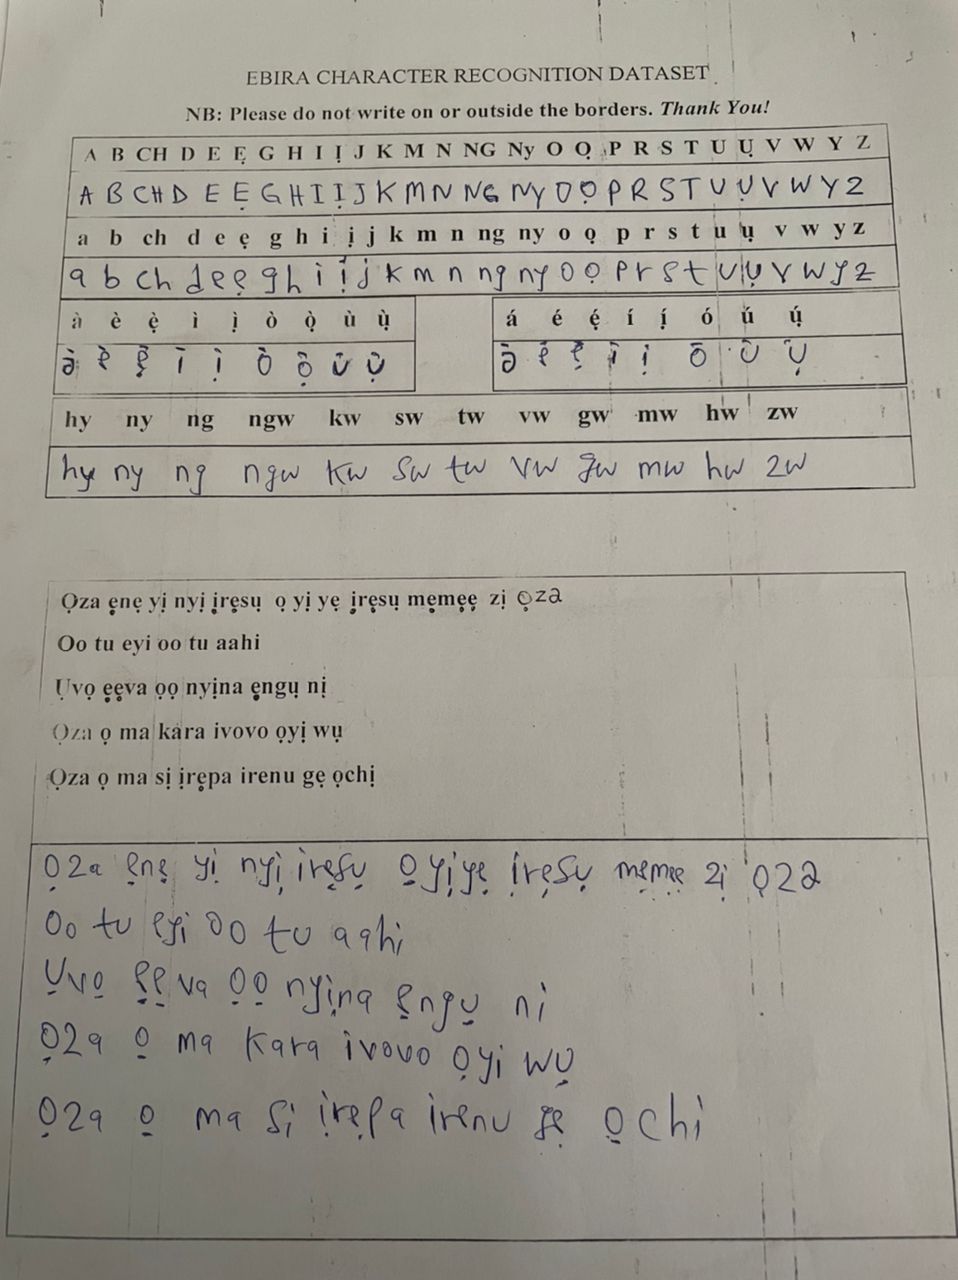 EBIRA CHARACTER RECOGNITION DATASET
NB: Please do not write on or outside the borders. Thank You!
A B CH D E Ẹ G H I Ị J K M N NG Ny O Ọ P R S T U Ụ V W Y Z
A B CH D E Ẹ G H I Ị J K M N NG Ny O Ọ P R S T U Ụ V W Y Z
a b ch d e ẹ g h i ị j k m n ng ny o ọ p r s t u ụ v w y z
a b ch d e ẹ g h i ị j k m n ng ny o ọ p r s t u ụ v w y z
à è ẹ̀ ì ị̀ ò ọ̀ ù ụ̀ á é ẹ́ í ị́ ó ú ụ́
hy ny ng ngw kw sw tw vw gw mw hw zw
hy ny ng ngw kw sw tw vw gw mw hw zw
Ọza ẹnẹ yị nyị ịrẹsụ ọ yị yẹ ịrẹsụ mẹmẹẹ zị ọza
Oo tu eyi oo tu aahi
Ụvọ ẹẹva ọọ nyịna ẹngụ nị
Ọza ọ ma kara ivovo ọyị wụ
Ọza ọ ma sị ịrẹpa irenu gẹ ọchị
Ọza ẹnẹ yị nyị ịrẹsụ ọ yị yẹ ịrẹsụ mẹmẹẹ zị ọza
Oo tu eyi oo tu aahi
Ụvọ ẹẹva ọọ nyịna ẹngụ ni
Ọza ọ ma kara ivovo ọyi wụ
Ọza ọ ma si ịrẹpa irenu gẹ ọchi